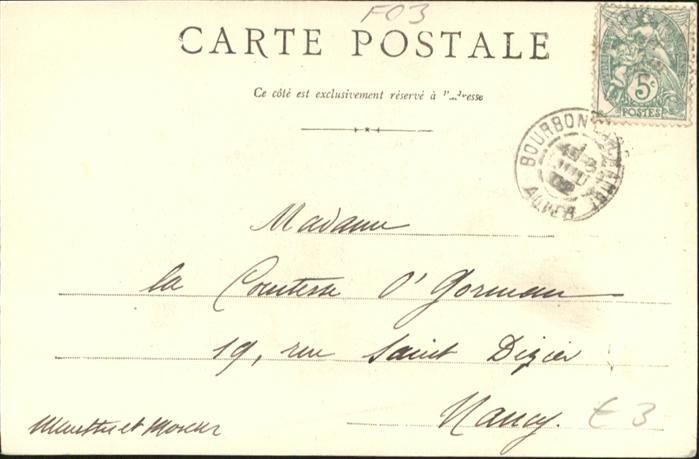 F03
CARTE POSTALE
Ce côté est exclusivement réservé à l'adresse
5c
POSTES
BOURBON L'ARCHAMBT
ALLIER
Madame
la Comtesse O'Gorman
19, rue Saint Dizier
Nancy.
€ 3
et